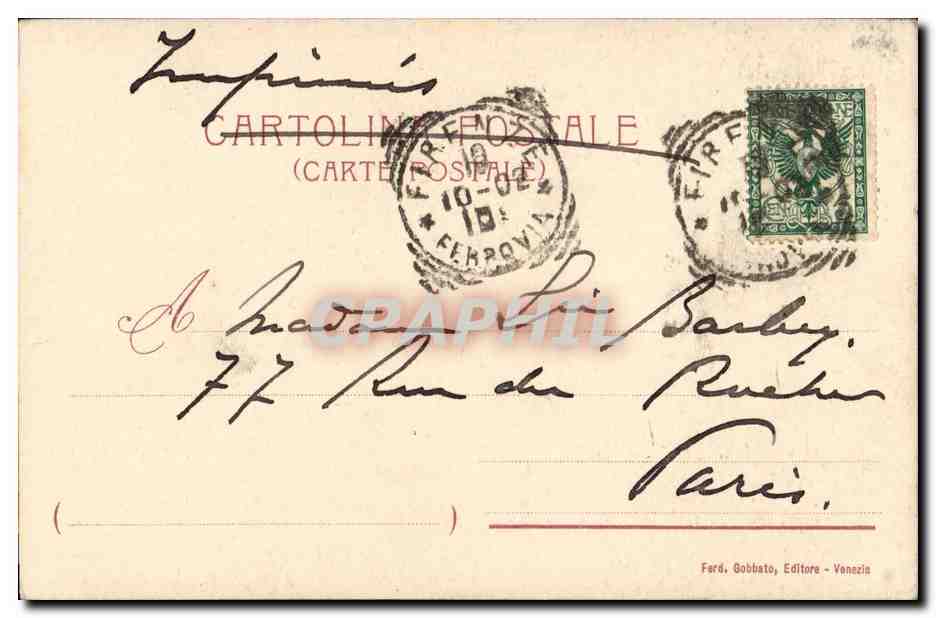 Imprimés
CARTOLINA POSTALE
(CARTE POSTALE)
FIRENZE
10-02
FERROVIA
FIRE
A Madame Barbey.
77 Rue du Rocher
Paris.
( )
Ferd. Gobbato, Editore - Venezia
CPAPHIL